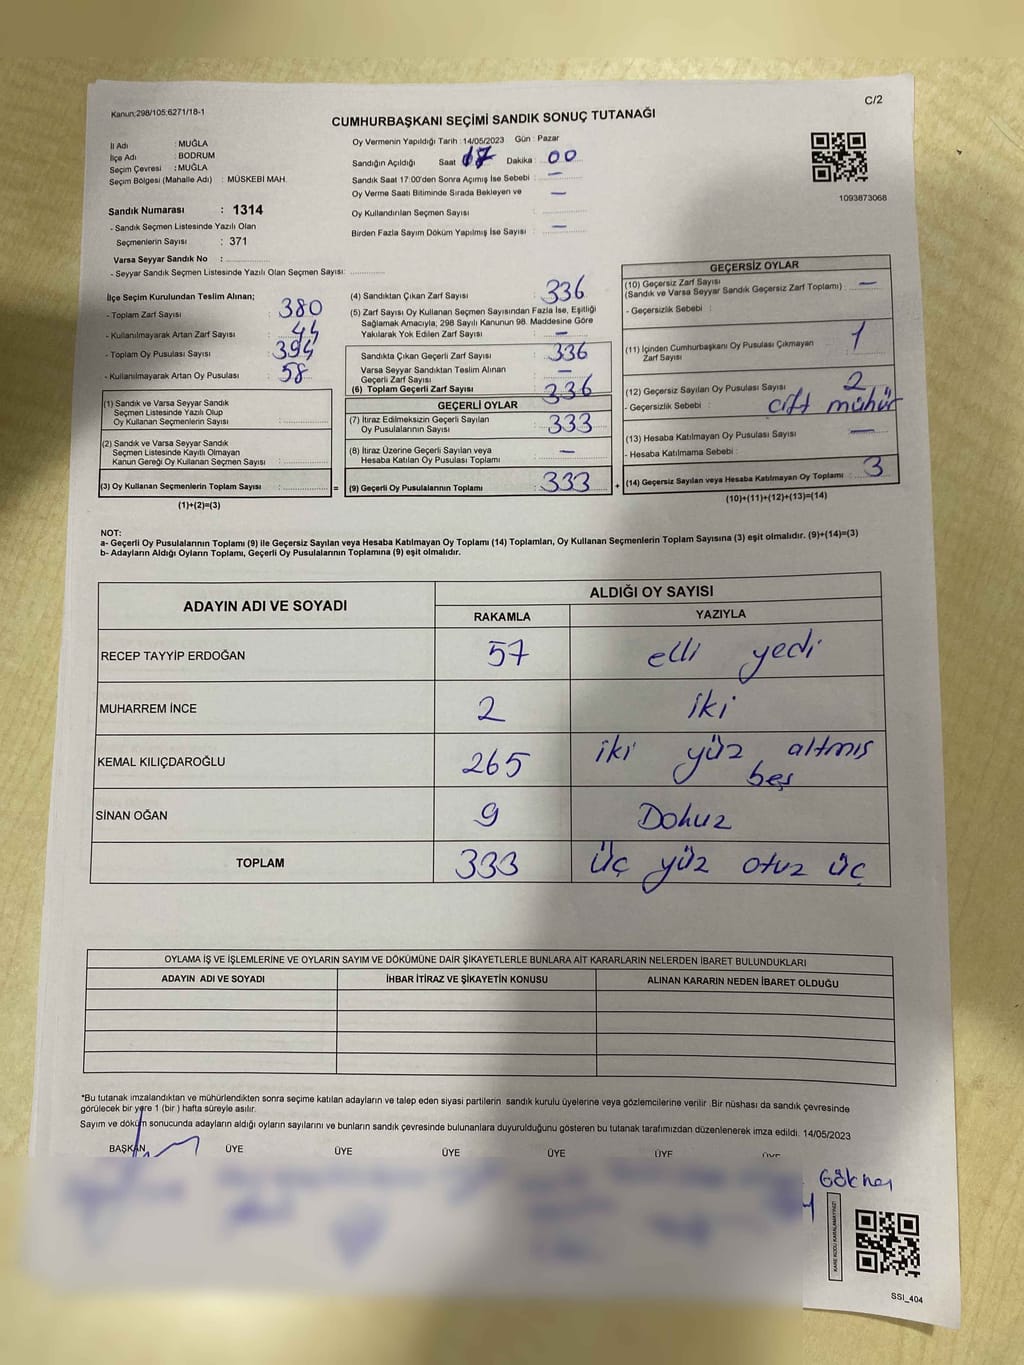 Kanun:298/105:6271/18-1
C/2
CUMHURBAŞKANI SEÇİMİ SANDIK SONUÇ TUTANAĞI
İl Adı : MUĞLA
İlçe Adı : BODRUM
Seçim Çevresi : MUĞLA
Seçim Bölgesi (Mahalle Adı) : MÜSKEBİ MAH.
Sandık Numarası : 1314
- Sandık Seçmen Listesinde Yazılı Olan
Seçmenlerin Sayısı : 371
Varsa Seyyar Sandık No :
- Seyyar Sandık Seçmen Listesinde Yazılı Olan Seçmen Sayısı:
Oy Vermenin Yapıldığı Tarih : 14/05/2023 Gün : Pazar
Sandığın Açıldığı Saat Dakika : 00
Sandık Saat 17:00'den Sonra Açımış İse Sebebi : —
Oy Verme Saati Bitiminde Sırada Bekleyen ve —
Oy Kullandırılan Seçmen Sayısı
Birden Fazla Sayım Döküm Yapılmış İse Sayısı : —
1093873068
İlçe Seçim Kurulundan Teslim Alınan;
- Toplam Zarf Sayısı : 380
- Kullanılmayarak Artan Zarf Sayısı : 44
- Toplam Oy Pusulası Sayısı : 394
- Kullanılmayarak Artan Oy Pusulası : 58
(1) Sandık ve Varsa Seyyar Sandık
Seçmen Listesinde Yazılı Olup
Oy Kullanan Seçmenlerin Sayısı :
(2) Sandık ve Varsa Seyyar Sandık
Seçmen Listesinde Kayıtlı Olmayan
Kanun Gereği Oy Kullanan Seçmen Sayısı :
(3) Oy Kullanan Seçmenlerin Toplam Sayısı :
(1)+(2)=(3)
(4) Sandıktan Çıkan Zarf Sayısı : 336
(5) Zarf Sayısı Oy Kullanan Seçmen Sayısından Fazla İse, Eşitliği
Sağlamak Amacıyla, 298 Sayılı Kanunun 98. Maddesine Göre
Yakılarak Yok Edilen Zarf Sayısı : —
Sandıkta Çıkan Geçerli Zarf Sayısı : 336
Varsa Seyyar Sandıktan Teslim Alınan
Geçerli Zarf Sayısı : —
(6) Toplam Geçerli Zarf Sayısı : 336
GEÇERLİ OYLAR
(7) İtiraz Edilmeksizin Geçerli Sayılan
Oy Pusulalarının Sayısı : 333
(8) İtiraz Üzerine Geçerli Sayılan veya
Hesaba Katılan Oy Pusulası Toplamı : —
= (9) Geçerli Oy Pusulalarının Toplamı : 333 +
GEÇERSİZ OYLAR
(10) Geçersiz Zarf Sayısı
(Sandık ve Varsa Seyyar Sandık Geçersiz Zarf Toplamı) : —
- Geçersizlik Sebebi :
(11) İçinden Cumhurbaşkanı Oy Pusulası Çıkmayan
Zarf Sayısı 1
(12) Geçersiz Sayılan Oy Pusulası Sayısı : 2
- Geçersizlik Sebebi : çift mühür
(13) Hesaba Katılmayan Oy Pusulası Sayısı : —
- Hesaba Katılmama Sebebi :
(14) Geçersiz Sayılan veya Hesaba Katılmayan Oy Toplamı : 3
(10)+(11)+(12)+(13)=(14)
NOT:
a- Geçerli Oy Pusulalarının Toplamı (9) ile Geçersiz Sayılan veya Hesaba Katılmayan Oy Toplamı (14) Toplamları, Oy Kullanan Seçmenlerin Toplam Sayısına (3) eşit olmalıdır. (9)+(14)=(3)
b- Adayların Aldığı Oyların Toplamı, Geçerli Oy Pusulalarının Toplamına (9) eşit olmalıdır.
ADAYIN ADI VE SOYADI ALDIĞI OY SAYISI
RAKAMLA YAZIYLA
RECEP TAYYİP ERDOĞAN 57 elli yedi
MUHARREM İNCE 2 iki
KEMAL KILIÇDAROĞLU 265 iki yüz altmış
beş
SİNAN OĞAN 9 Dokuz
TOPLAM 333 üç yüz otuz üç
OYLAMA İŞ VE İŞLEMLERİNE VE OYLARIN SAYIM VE DÖKÜMÜNE DAİR ŞİKAYETLERLE BUNLARA AİT KARARLARIN NELERDEN İBARET BULUNDUKLARI
ADAYIN ADI VE SOYADI İHBAR İTİRAZ VE ŞİKAYETİN KONUSU ALINAN KARARIN NEDEN İBARET OLDUĞU
*Bu tutanak imzalandıktan ve mühürlendikten sonra seçime katılan adayların ve talep eden siyasi partilerin sandık kurulu üyelerine veya gözlemcilerine verilir .Bir nüshası da sandık çevresinde
görülecek bir yere 1 (bir ) hafta süreyle asılır.
Sayım ve döküm sonucunda adayların aldığı oyların sayılarını ve bunların sandık çevresinde bulunanlara duyurulduğunu gösteren bu tutanak tarafımızdan düzenlenerek imza edildi. 14/05/2023
BAŞKAN ÜYE ÜYE ÜYE ÜYE ÜYE ÜYE
KARE KODU KARALAMAYINIZ!
SSI_404